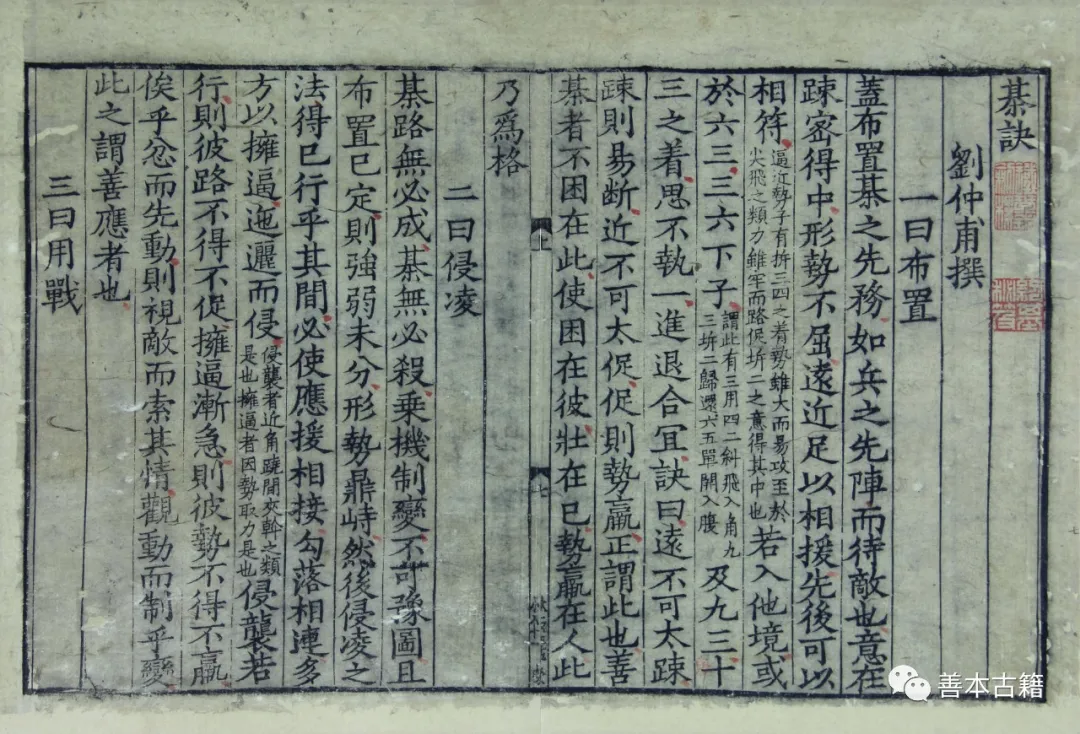 棊訣
劉仲甫撰
一曰布置
蓋布置棊之先務如兵之先陣而待敵也意在
踈密得中形勢不屈遠近足以相援先後可以
相符逼近勢子有拆三四之着勢雖大而易攻至於
尖飛之類力雖牢而路促拆二之意得其中也若入他境或
於六三三六下子謂此有三用四二斜飛入角九
三拆二歸還六五單開入腹及九三十
三之着思不執一進退合宜訣曰遠不可太踈
踈則易斷近不可太促促則勢羸正謂此也善
棊者不困在此使困在彼壯在己勢羸在人此
乃爲格
二曰侵凌
棊路無必成棊無必殺乘機制變不可豫圖且
布置已定則強弱未分形勢鼎峙然後侵凌之
法得已行乎其間必使應援相接勾落相連多
方以擁逼迤邐而侵侵襲者近角蹺閒夾幹之類
是也擁逼者因勢取力是也侵襲若
行則彼路不得不促擁逼漸急則彼勢不得不羸
俟乎忿而先動則視敵而索其情觀動而制乎變
此之謂善應者也
三曰用戰
七
善本古籍